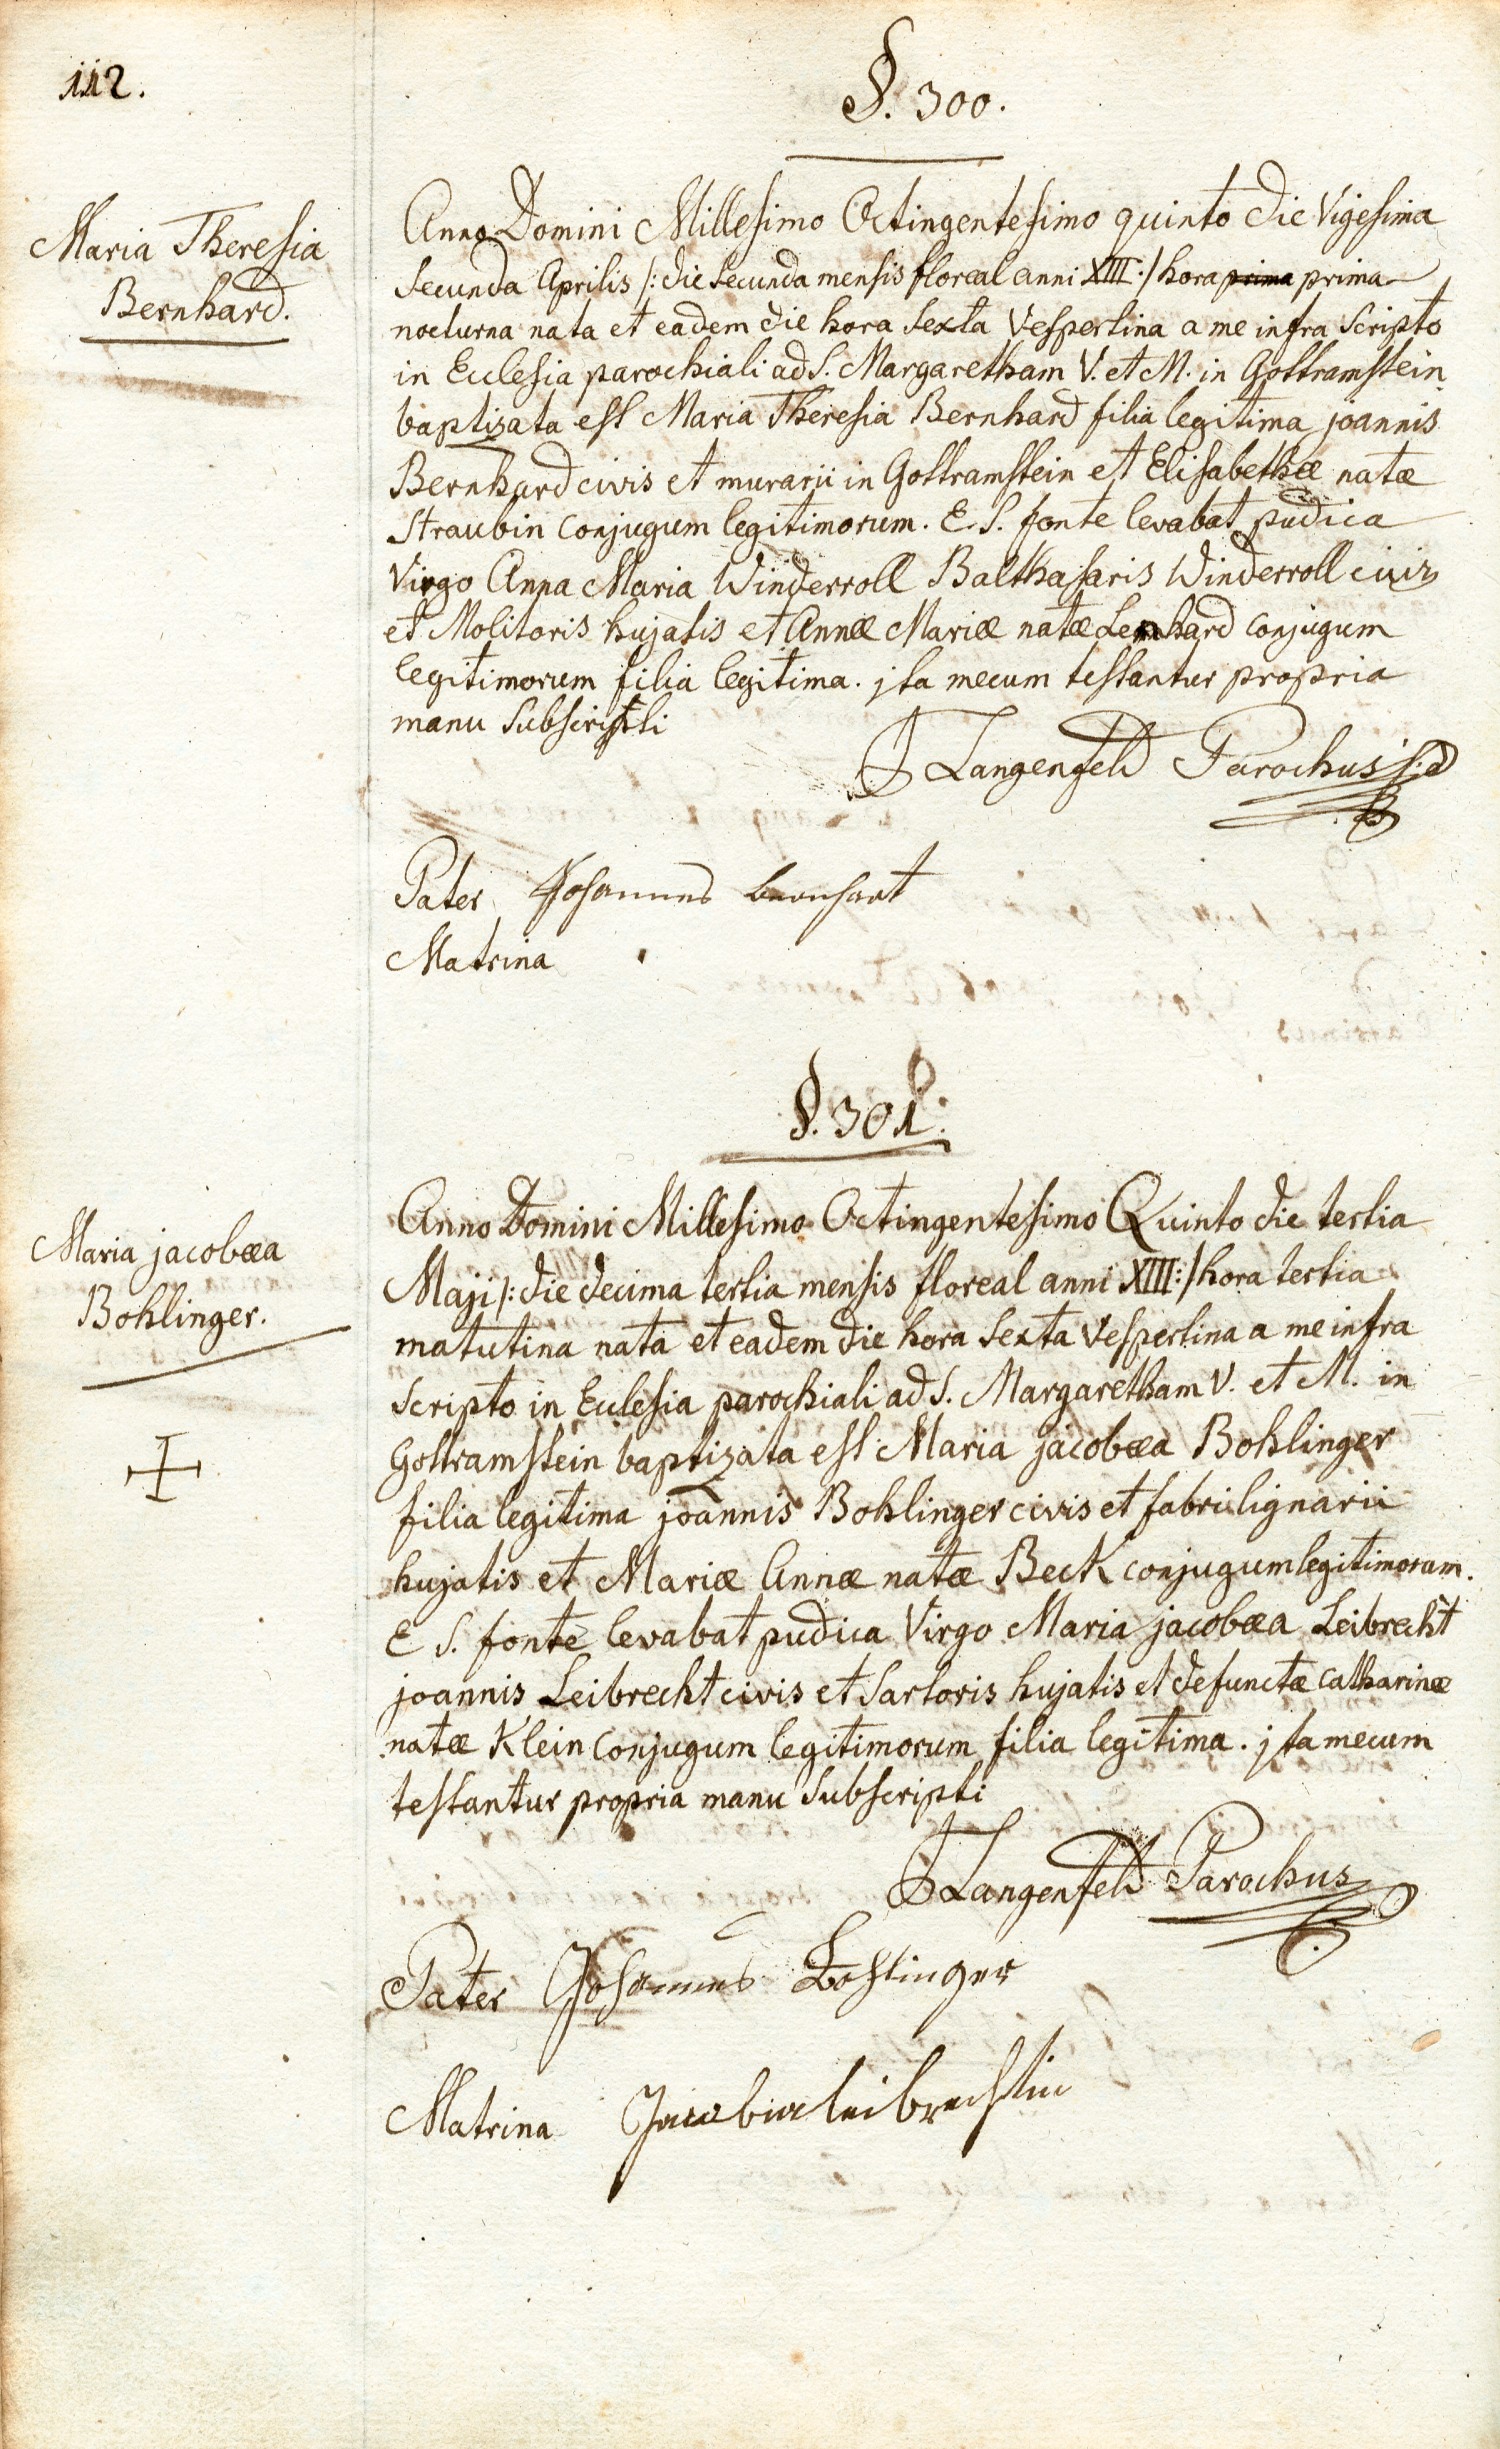 112.
§. 300.
Maria Theresia
Bernhard.
Anno Domini Millesimo Octingentesimo quinto die Vigesima
Secunda Aprilis /: die secunda mensis floreal anni XIII :/ hora prima prima
nocturna nata et eadem die hora Sexta Vespertina a me infra Scripto
in Ecclesia parochiali ad S. Margaretham V. et M. in Gottramstein
baptizata est Maria Theresia Bernhard filia legitima joannis
Bernhard civis et murarii in Gottramstein et Elisabethæ natæ
Straubin Conjugum legitimorum. E. S. fonte levabat pudica
Virgo Anna Maria Winderroll Balthasaris Winderroll civis
et Molitoris hujatis et Annæ Mariæ natæ Lenhard Conjugum
legitimorum filia legitima. jta mecum testantur propria
manu Subscripti
J Langenfeld Parochus
Pater Johannes bernhart
Matrina
§. 301.
Maria jacobæa
Bohlinger.
Anno Domini Millesimo Octingentesimo Quinto die tertia
Maji /: die decima tertia mensis floreal anni XIII :/ hora tertia
matutina nata et eadem die hora Sexta Vespertina a me infra
Scripto in Eclesia parochiali ad S. Margaretham V. et M. in
Gottramstein baptizata est Maria jacobæa Bohlinger
filia legitima joannis Bohlinger civis et fabri lignarii
hujatis et Mariæ Annæ natæ Beck conjugum legitimorum.
E S. fonte levabat pudica Virgo Maria jacobæa Leibrecht
joannis Leibrecht civis et Sartoris hujatis et defunctæ Catharinæ
natæ Klein Conjugum legitimorum filia legitima. jta mecum
testantur propria manu Subscripti
J Langenfeld Parochus
Pater Johannes Bohlinger
Matrina Jacobia leibrechtin